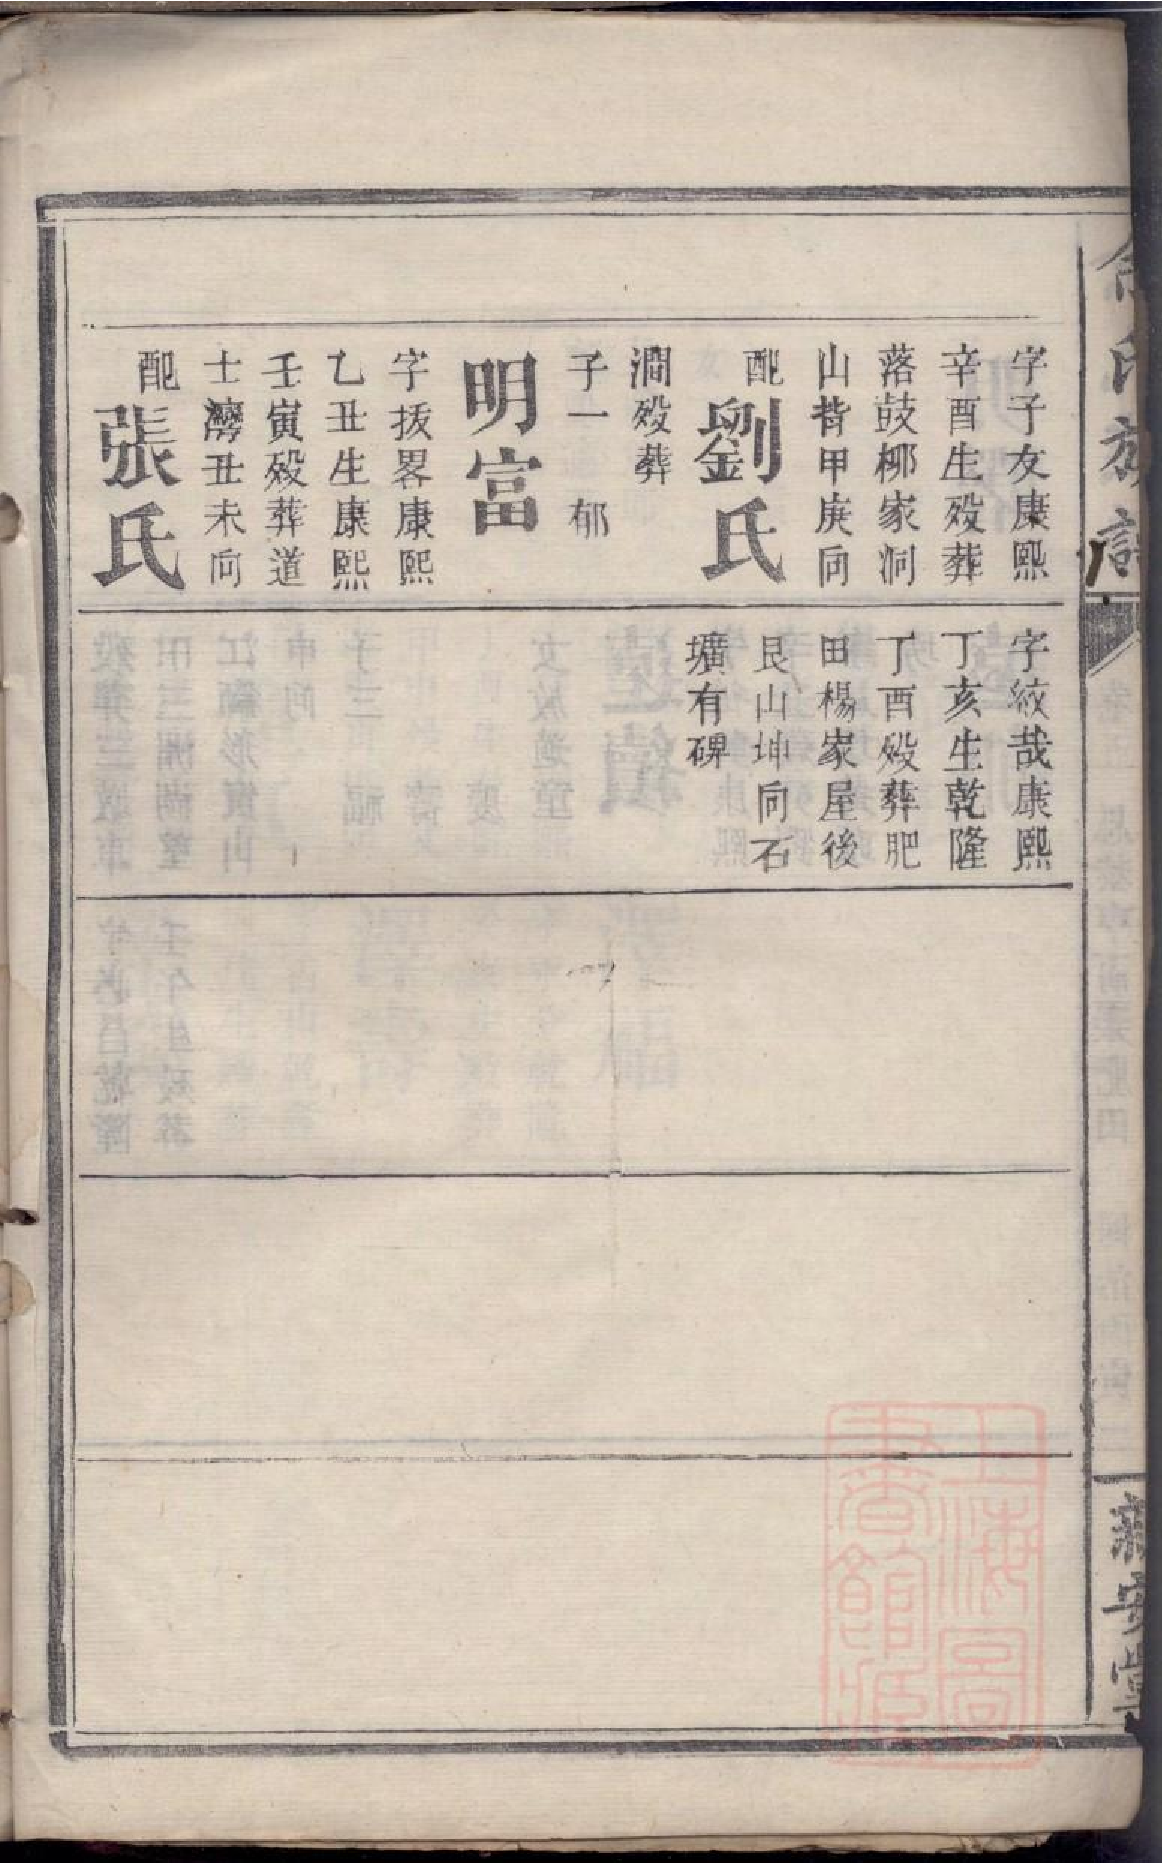 字子友康熙
辛酉生殁葬
落鼓柳家洞
山背甲庚向
配劉氏
澗殁葬
子一 郁
明富
字拔畧康熙
乙丑生康熙
壬寅殁葬道
士灣丑未向
配張氏
字紋哉康熙
丁亥生乾隆
丁酉殁葬肥
田楊家屋後
艮山坤向石
壙有碑
氏族譜
新安堂
上海圖
書館藏